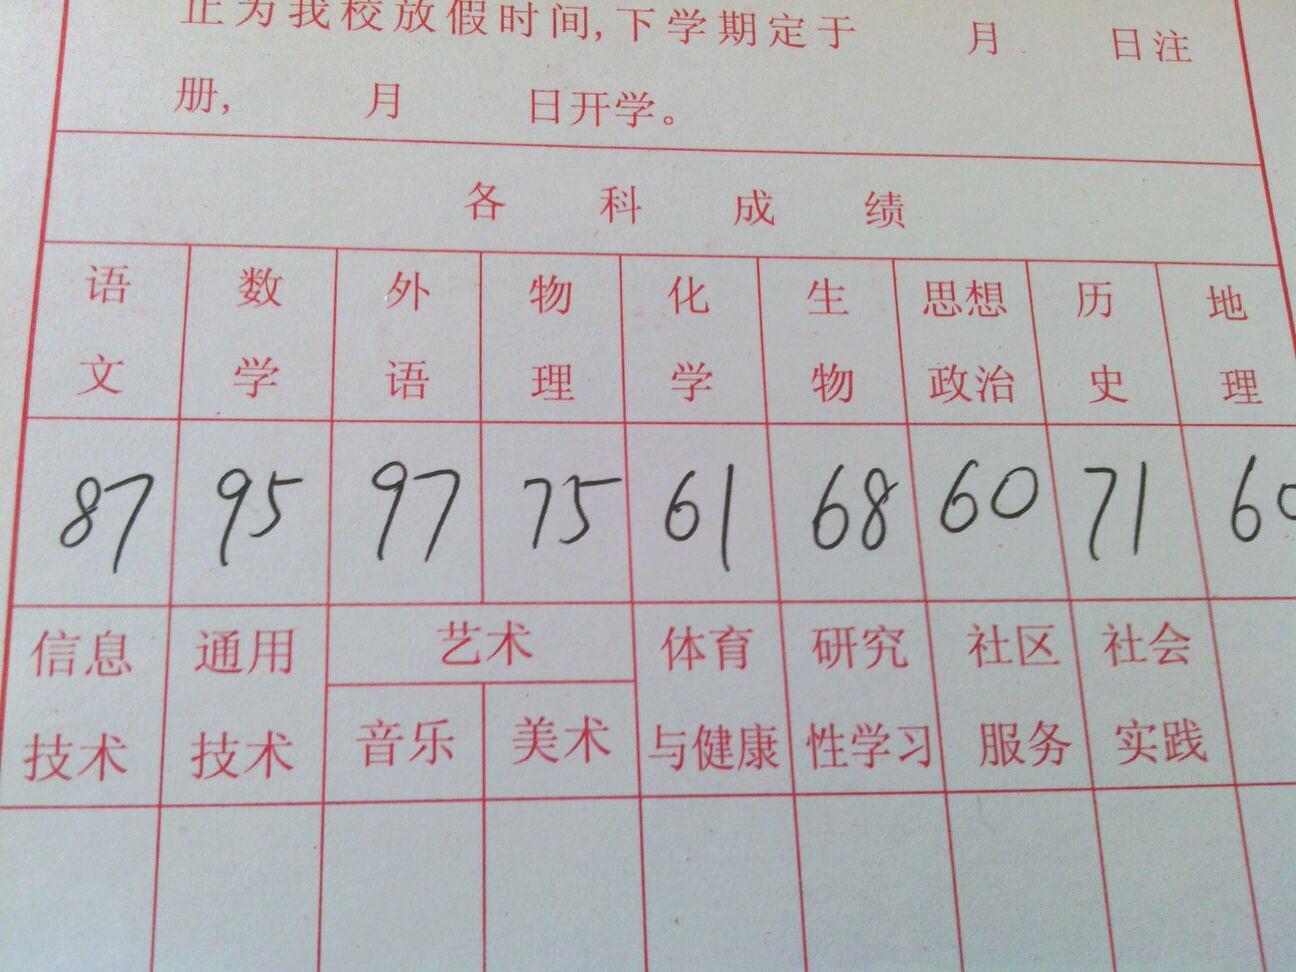 止为我校放假时间,下学期定于 月 日注
册, 月 日开学。
各科成绩
语文 数学 外语 物理 化学 生物 思想政治 历史 地理
87 95 97 75 61 68 60 71 60
信息技术 通用技术 艺术 体育与健康 研究性学习 社区服务 社会实践
音乐 美术